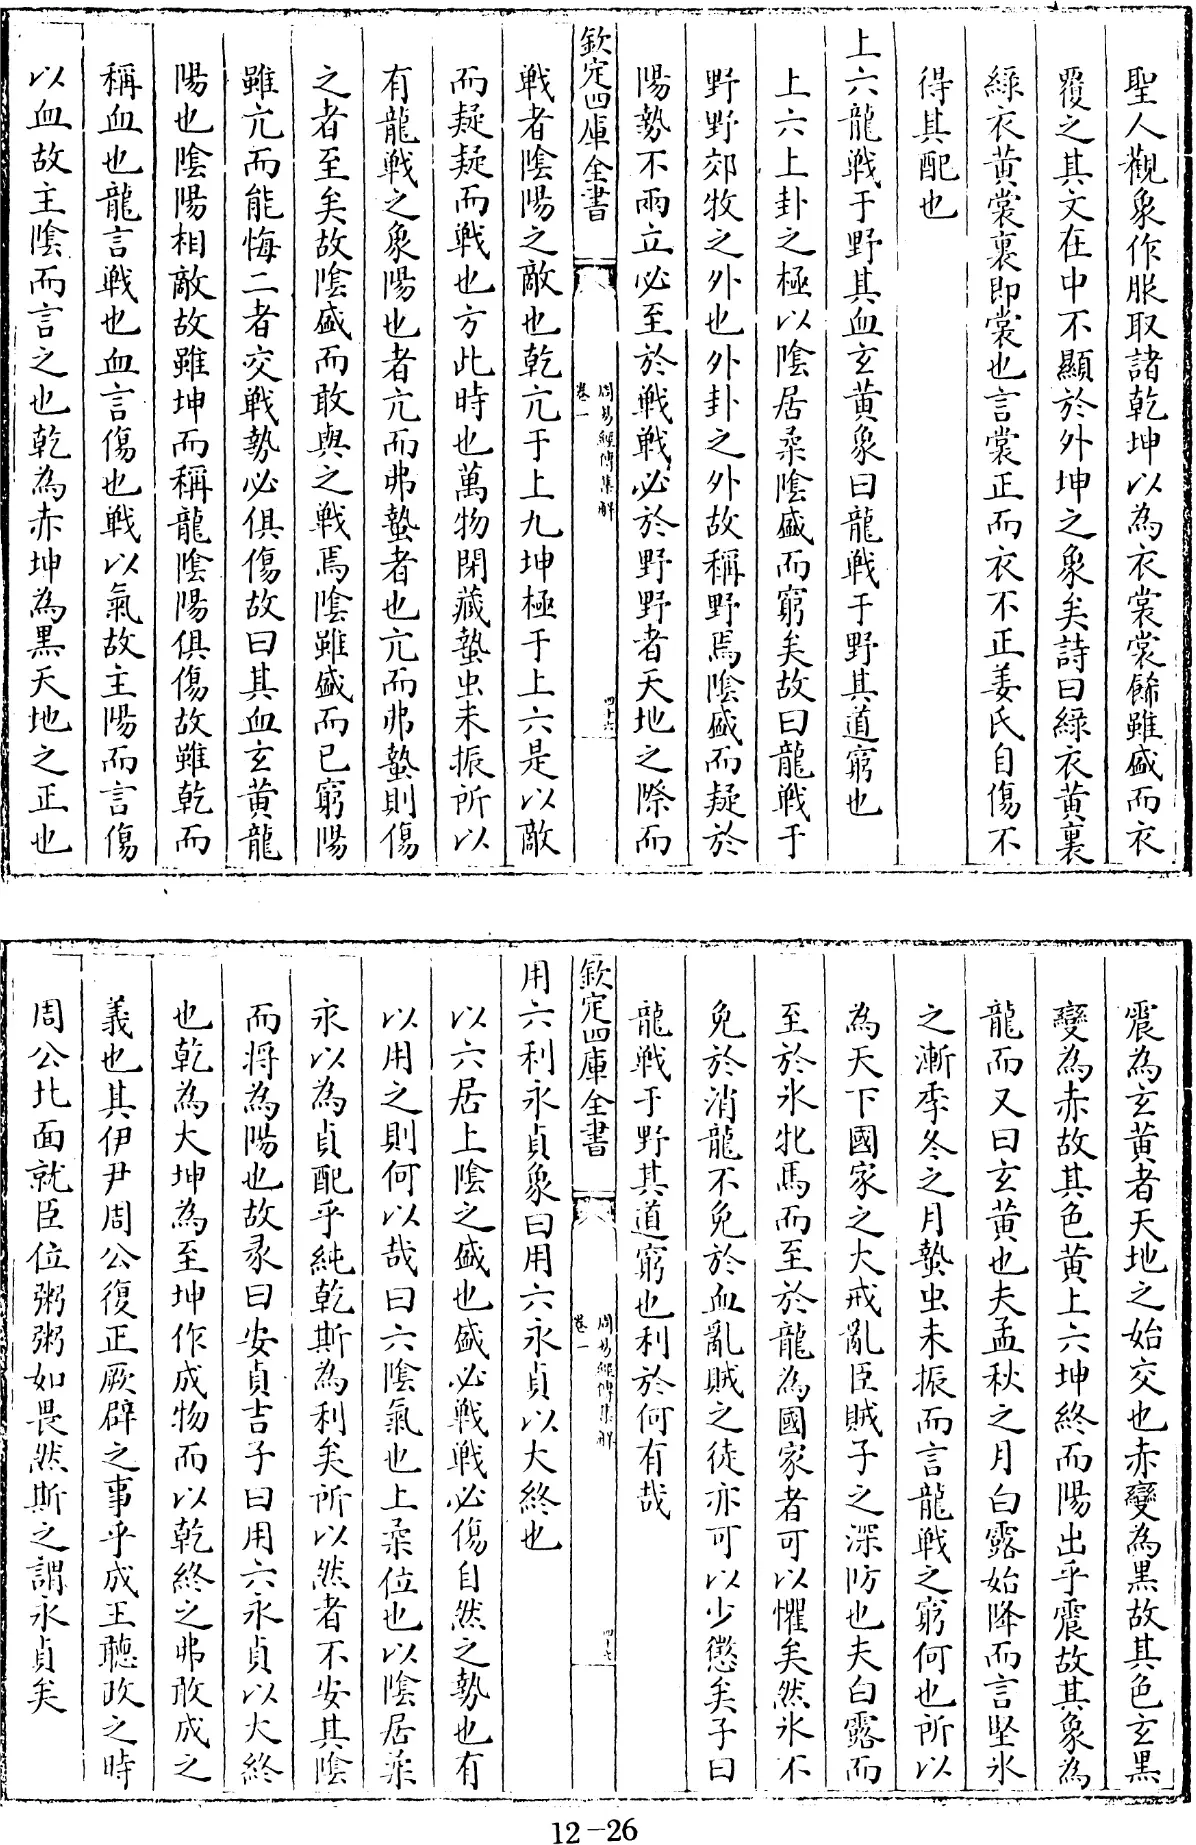 聖人觀象作服取諸乾坤以為衣裳裳餙雖盛而衣
覆之其文在中不顯於外坤之象矣詩曰綠衣黄裏
綠衣黄裳裏即裳也言裳正而衣不正姜氏自傷不
得其配也
上六龍戰于野其血玄黄象曰龍戰于野其道窮也
上六上卦之極以陰居柔陰盛而窮矣故曰龍戰于
野野郊牧之外也外卦之外故稱野焉陰盛而疑於
陽勢不兩立必至於戰戰必於野野者天地之際而
欽定四庫全書
周易經傳集解
卷一
四十六
戰者陰陽之敵也乾亢于上九坤極于上六是以敵
而疑疑而戰也方此時也萬物閉藏蟄虫未振所以
有龍戰之象陽也者亢而弗蟄者也亢而弗蟄則傷
之者至矣故陰盛而敢與之戰焉陰雖盛而已窮陽
雖亢而能悔二者交戰勢必俱傷故曰其血玄黄龍
陽也陰陽相敵故雖坤而稱龍陰陽俱傷故雖乾而
稱血也龍言戰也血言傷也戰以氣故主陽而言傷
以血故主陰而言之也乾為赤坤為黒天地之正也
震為玄黄者天地之始交也赤變為黒故其色玄黒
變為赤故其色黄上六坤終而陽出乎震故其象為
龍而又曰玄黄也夫孟秋之月白露始降而言堅氷
之漸季冬之月蟄虫未振而言龍戰之窮何也所以
為天下國家之大戒亂臣賊子之深防也夫白露而
至於氷牝馬而至於龍為國家者可以懼矣然氷不
免於消龍不免於血亂賊之徒亦可以少懲矣子曰
龍戰于野其道窮也利於何有哉
欽定四庫全書
周易經傳集解
卷一
四十七
用六利永貞象曰用六永貞以大終也
以六居上陰之盛也盛必戰戰必傷自然之勢也有
以用之則何以哉曰六陰氣也上柔位也以陰居柔
永以為貞配乎純乾斯為利矣所以然者不安其陰
而將為陽也故彖曰安貞吉子曰用六永貞以大終
也乾為大坤為至坤作成物而以乾終之弗敢成之
義也其伊尹周公復正厥辟之事乎成王聽政之時
周公北面就臣位粥粥如畏然斯之謂永貞矣
12-26